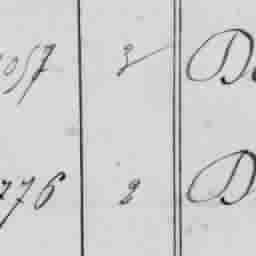 057 2 D
776 2 D